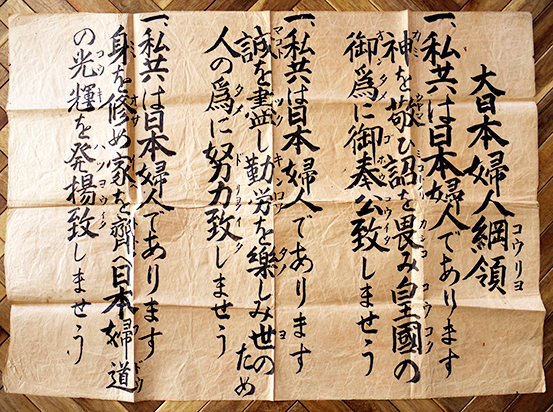 大日本婦人綱領
一、私共は日本婦人であります
神を敬ひ詔を畏み皇國の
御爲に御奉公致しませう
一、私共は日本婦人であります
誠を盡し勤労を樂しみ世のため
人の爲に努力致しませう
一、私共は日本婦人であります
身を修め家を齊へ日本婦道
の光輝を発揚致しませう